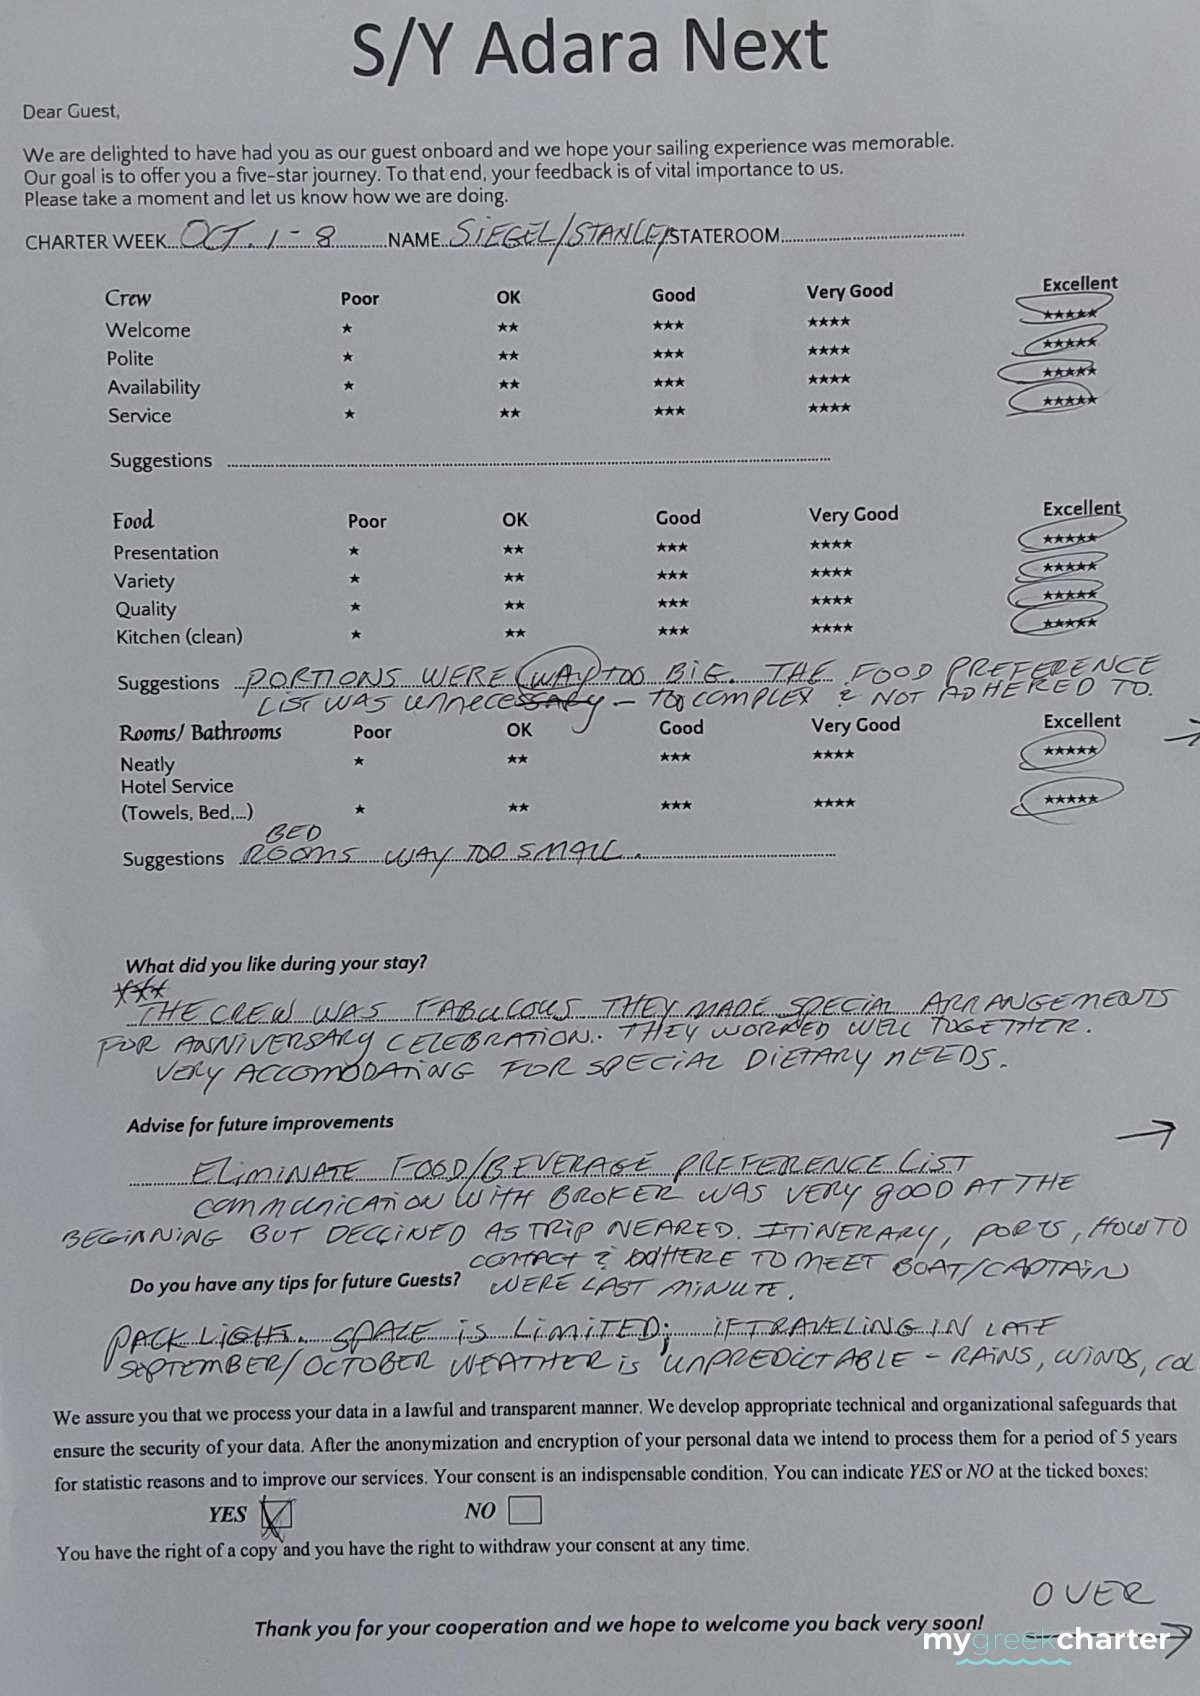 S/Y Adara Next
Dear Guest,
We are delighted to have had you as our guest onboard and we hope your sailing experience was memorable.
Our goal is to offer you a five-star journey. To that end, your feedback is of vital importance to us.
Please take a moment and let us know how we are doing.
CHARTER WEEK OCT. 1-8 NAME SIEGEL/STANLEY STATEROOM
Crew Poor OK Good Very Good Excellent
Welcome ★ ★★ ★★★ ★★★★ ★★★★★
Polite ★ ★★ ★★★ ★★★★ ★★★★★
Availability ★ ★★ ★★★ ★★★★ ★★★★★
Service ★ ★★ ★★★ ★★★★ ★★★★★
Suggestions
Food Poor OK Good Very Good Excellent
Presentation ★ ★★ ★★★ ★★★★ ★★★★★
Variety ★ ★★ ★★★ ★★★★ ★★★★★
Quality ★ ★★ ★★★ ★★★★ ★★★★★
Kitchen (clean) ★ ★★ ★★★ ★★★★ ★★★★★
Suggestions PORTIONS WERE WAY TOO BIG. THE FOOD PREFERENCE
LIST WAS UNNECESSARY - TOO COMPLEX & NOT ADHERED TO.
Rooms/ Bathrooms Poor OK Good Very Good Excellent
Neatly ★ ★★ ★★★ ★★★★ ★★★★★
Hotel Service
(Towels, Bed,...) ★ ★★ ★★★ ★★★★ ★★★★★
BED
Suggestions ROOMS WAY TOO SMALL.
What did you like during your stay?
***
THE CREW WAS FABULOUS THEY MADE SPECIAL ARRANGEMENTS
FOR ANNIVERSARY CELEBRATION. THEY WORKED WELL TOGETHER.
VERY ACCOMODATING FOR SPECIAL DIETARY NEEDS.
Advise for future improvements →
ELIMINATE FOOD/BEVERAGE PREFERENCE LIST
COMMUNICATION WITH BROKER WAS VERY GOOD AT THE
BEGINNING BUT DECLINED AS TRIP NEARED. ITINERARY, PORTS, HOW TO
CONTACT & WHERE TO MEET BOAT/CAPTAIN
Do you have any tips for future Guests? WERE LAST MINUTE.
PACK LIGHT. SPACE IS LIMITED; IF TRAVELING IN LATE
SEPTEMBER/OCTOBER WEATHER IS UNPREDICTABLE - RAINS, WINDS, COL
We assure you that we process your data in a lawful and transparent manner. We develop appropriate technical and organizational safeguards that
ensure the security of your data. After the anonymization and encryption of your personal data we intend to process them for a period of 5 years
for statistic reasons and to improve our services. Your consent is an indispensable condition. You can indicate YES or NO at the ticked boxes:
YES NO
You have the right of a copy and you have the right to withdraw your consent at any time.
OVER
Thank you for your cooperation and we hope to welcome you back very soon! →
mygreekcharter